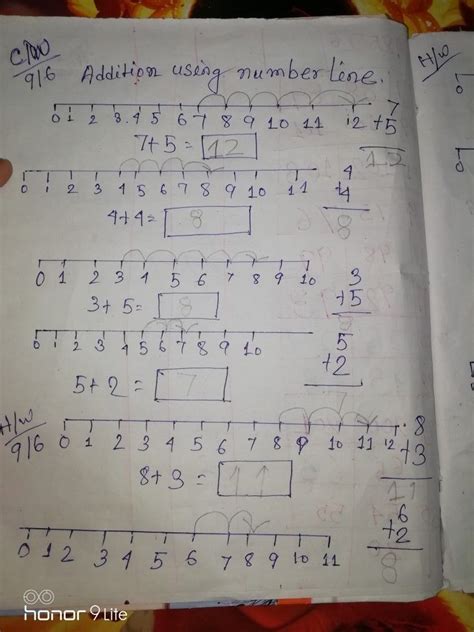 C/W
9/6 Addition using number line.
H/W
0 1 2 3 4 5 6 7 8 9 10 11 12
7
+5
12
7+5 = 12
0 1 2 3 4 5 6 7 8 9 10 11
4
+4
8
4+4= 8
0 1 2 3 4 5 6 7 8 9 10
3
+5
8
3+5= 8
0 1 2 3 4 5 6 7 8 9 10
5
+2
7
5+2 = 7
H/W
9/6
0 1 2 3 4 5 6 7 8 9 10 11 12
8
+3
11
8+3 = 11
0 1 2 3 4 5 6 7 8 9 10 11
6
+2
8
honor 9 Lite